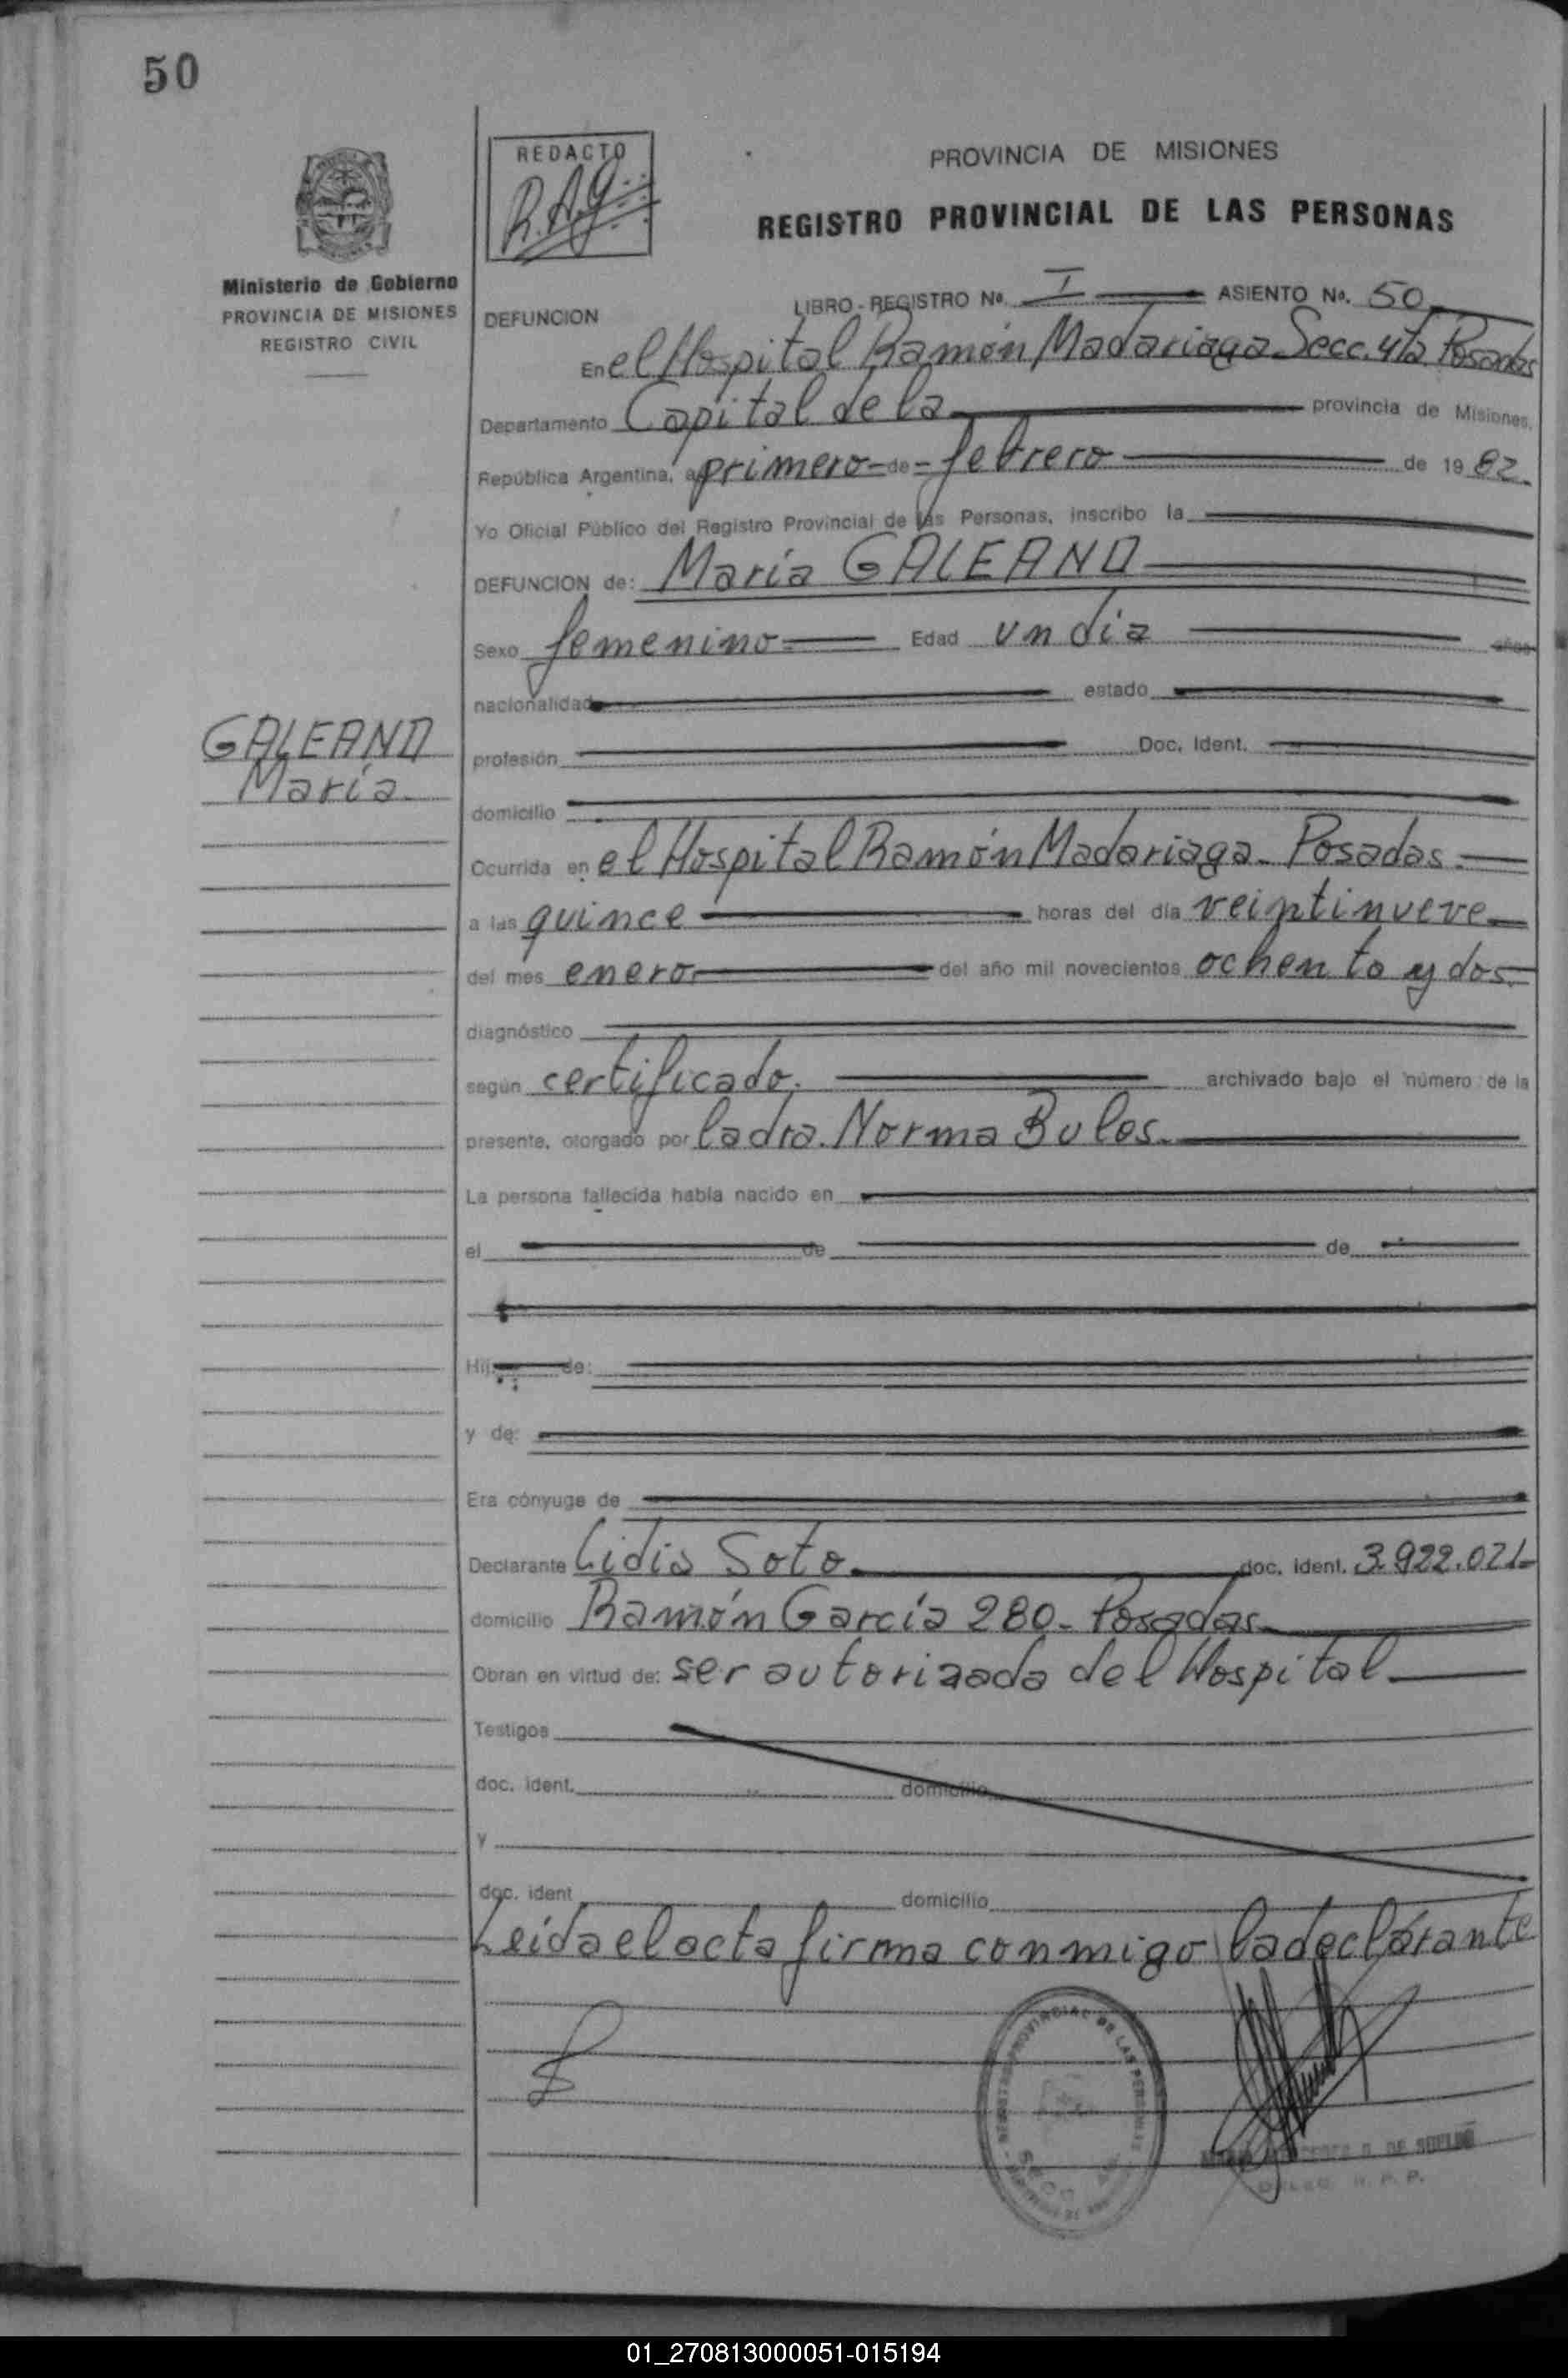 50
REDACTO
R.A.G.
PROVINCIA DE MISIONES
REGISTRO PROVINCIAL DE LAS PERSONAS
Ministerio de Gobierno
PROVINCIA DE MISIONES
REGISTRO CIVIL
LIBRO - REGISTRO Nº. I ASIENTO No. 50
DEFUNCION
En el Hospital Ramón Madariaga Secc. 4ta Posadas
Departamento Capital de la provincia de Misiones,
República Argentina, a primero de febrero de 1982.
Yo Oficial Público del Registro Provincial de las Personas, inscribo la
DEFUNCION de: María GALEANO
Sexo femenino Edad un día años
nacionalidad estado
GALEANO
María
profesión Doc. Ident.
domicilio
Ocurrida en el Hospital Ramón Madariaga - Posadas.
a las quince horas del día veintinueve
del mes enero del año mil novecientos ochenta y dos.
diagnóstico
según certificado. archivado bajo el número de la
presente, otorgado por la dra. Norma Bulos.
La persona fallecida había nacido en
el de de
Hij de:
y de:
Era cónyuge de
Declarante Lidia Soto. doc. ident. 3.922.021-
domicilio Ramón García 280 - Posadas
Obran en virtud de: ser autorizada del Hospital
Testigos
doc. ident. domicilio
y
doc. ident domicilio
Leída el acta firma conmigo la declarante
PROVINCIAL DE LAS PERSONAS
DE
R. P. P.
01_270813000051-015194